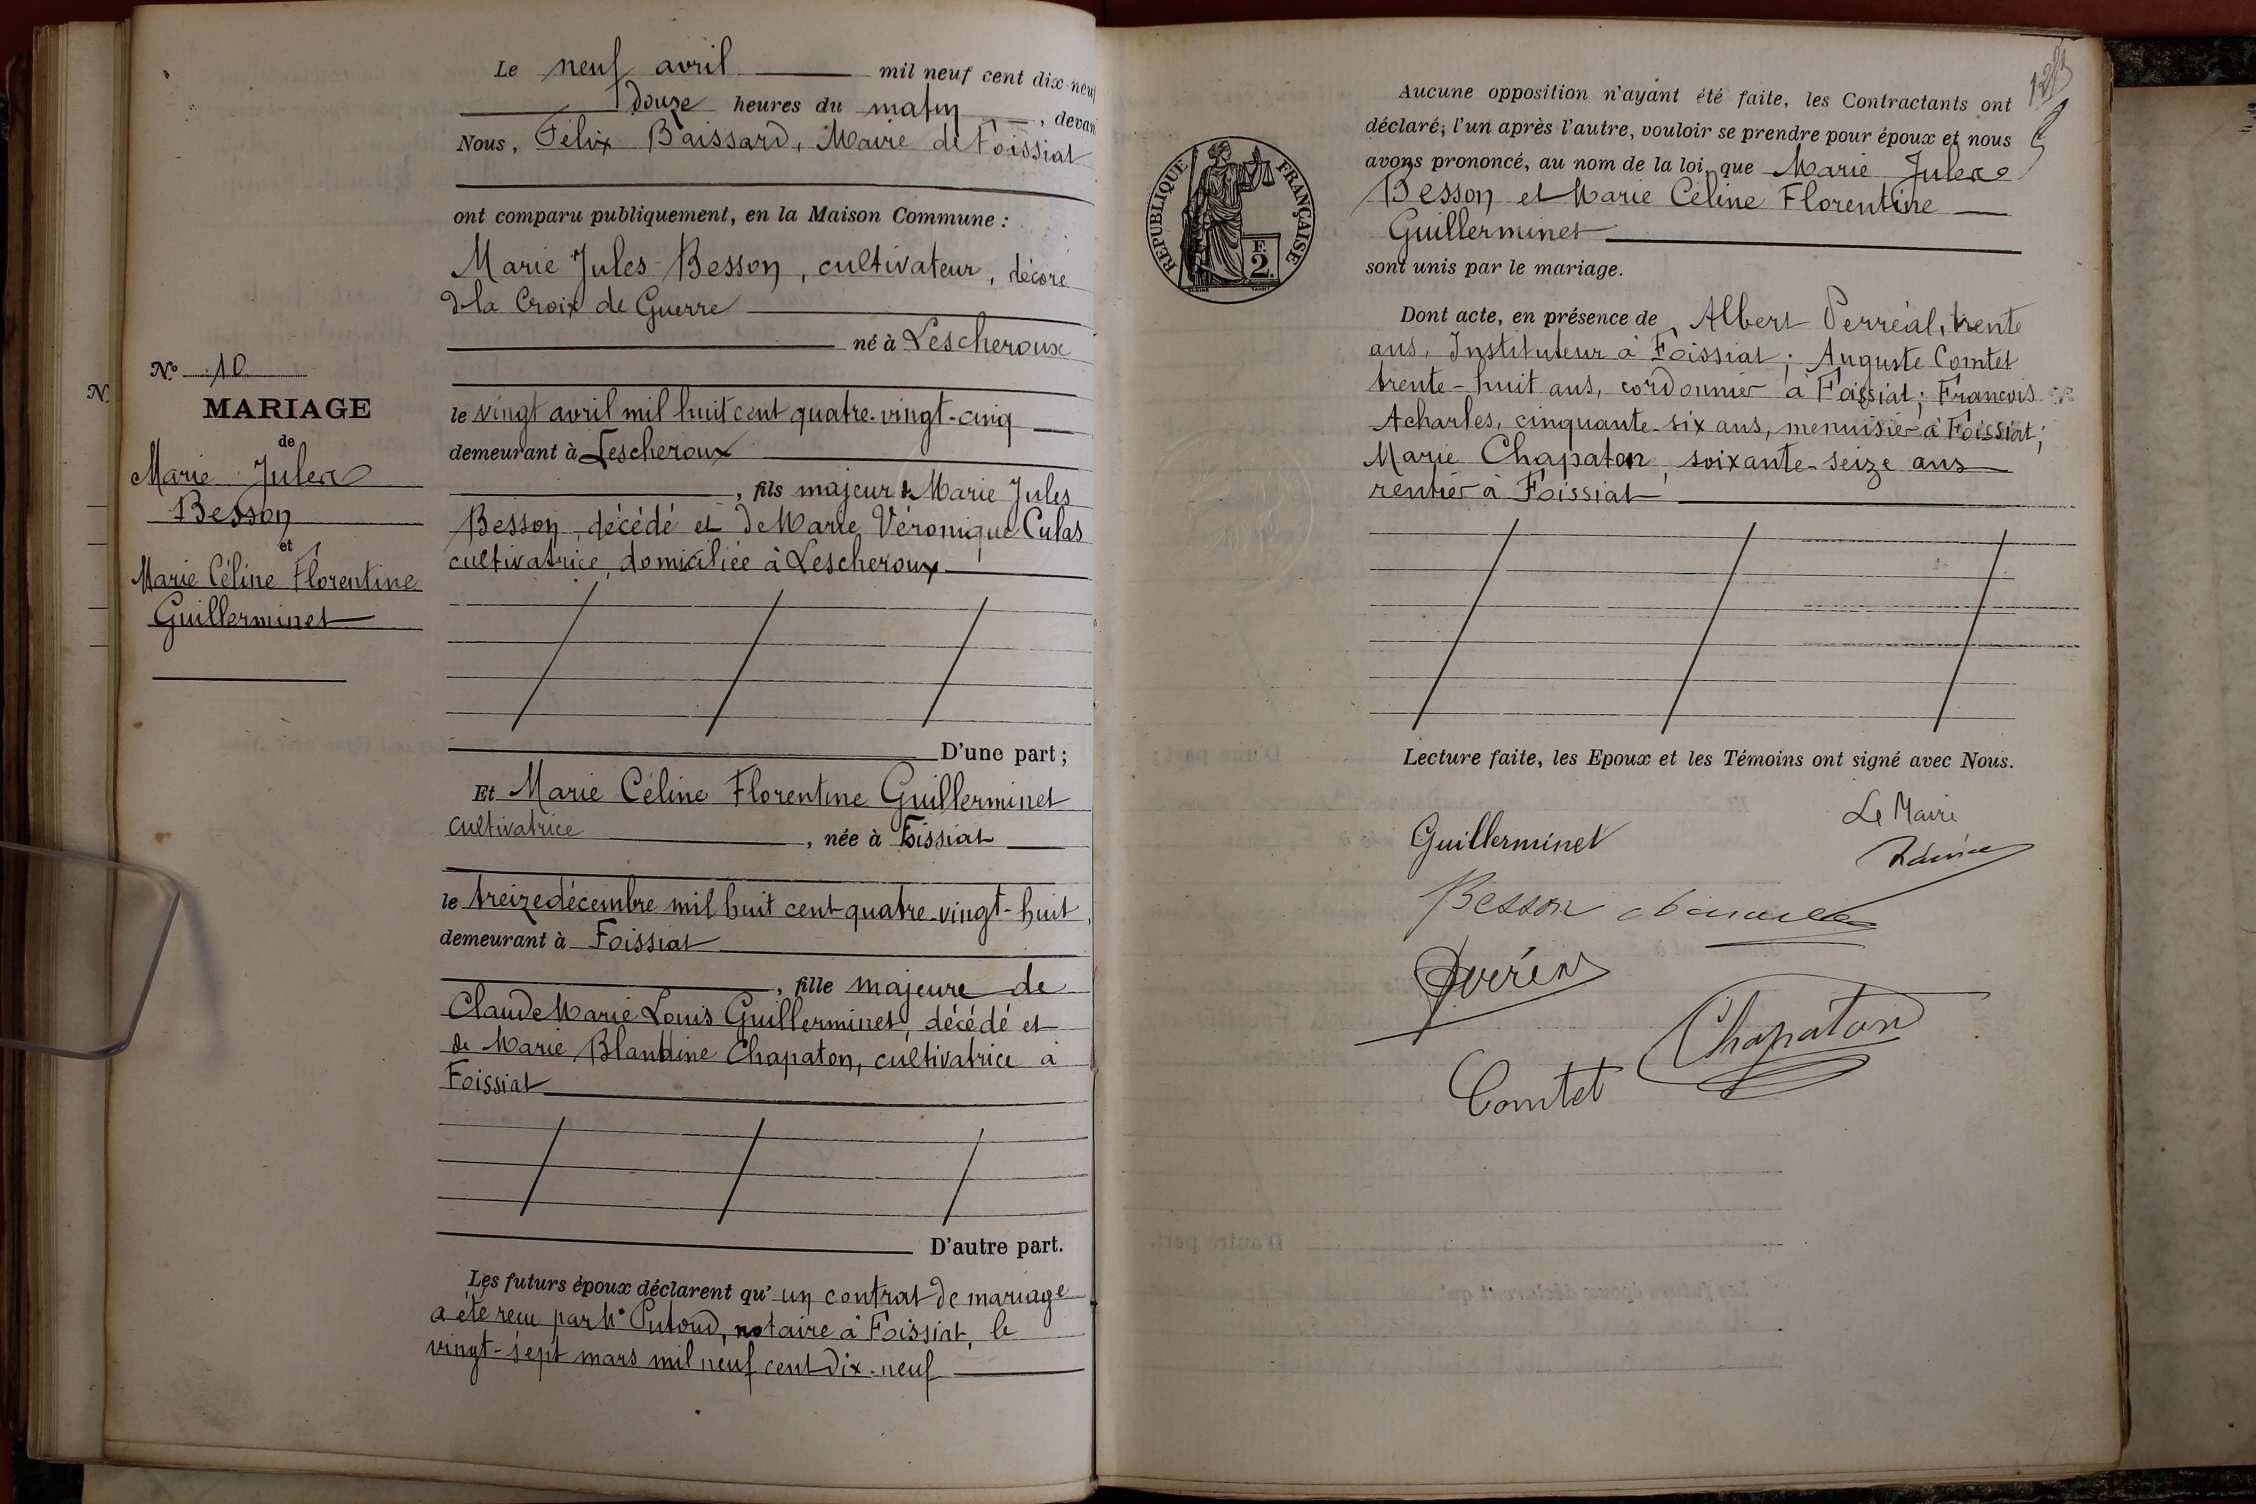 N.
Nº 10
MARIAGE
de
Marie Jules
Besson
et
Marie Céline Florentine
Guillerminet
Le neuf avril mil neuf cent dix-neuf
douze heures du matin, devant
Nous, Félix Baissard, Maire de Foissiat
ont comparu publiquement, en la Maison Commune :
Marie Jules Besson, cultivateur, décoré
de la Croix de Guerre
né à Lescheroux
le vingt avril mil huit cent quatre-vingt-cinq
demeurant à Lescheroux
, fils majeur de Marie Jules
Besson, décédé et de Marie Véronique Culas
cultivatrice, domiciliée à Lescheroux
D'une part ;
Et Marie Céline Florentine Guillerminet
cultivatrice, née à Foissiat
le treize décembre mil huit cent quatre-vingt-huit,
demeurant à Foissiat
, fille majeure de
Claude Marie Louis Guillerminet, décédé et
de Marie Blandine Chapaton, cultivatrice à
Foissiat
D'autre part.
Les futurs époux déclarent qu'un contrat de mariage
a été reçu par Me Putoud, notaire à Foissiat, le
vingt-sept mars mil neuf cent dix-neuf
Aucune opposition n'ayant été faite, les Contractants ont
déclaré, l'un après l'autre, vouloir se prendre pour époux et nous
avons prononcé, au nom de la loi, que Marie Jules
Besson et Marie Céline Florentine
Guillerminet
sont unis par le mariage.
REPUBLIQUE FRANÇAISE
F.
2.
Dont acte, en présence de Albert Perréal, trente
ans, Instituteur à Foissiat ; Auguste Comtet
trente-huit ans, cordonnier à Foissiat ; François
Acharles, cinquante-six ans, menuisier à Foissiat ;
Marie Chapaton, soixante-seize ans
rentier à Foissiat
Lecture faite, les Epoux et les Témoins ont signé avec Nous.
Le Maire
Guillerminet
Besson
Chapaton
Comtet